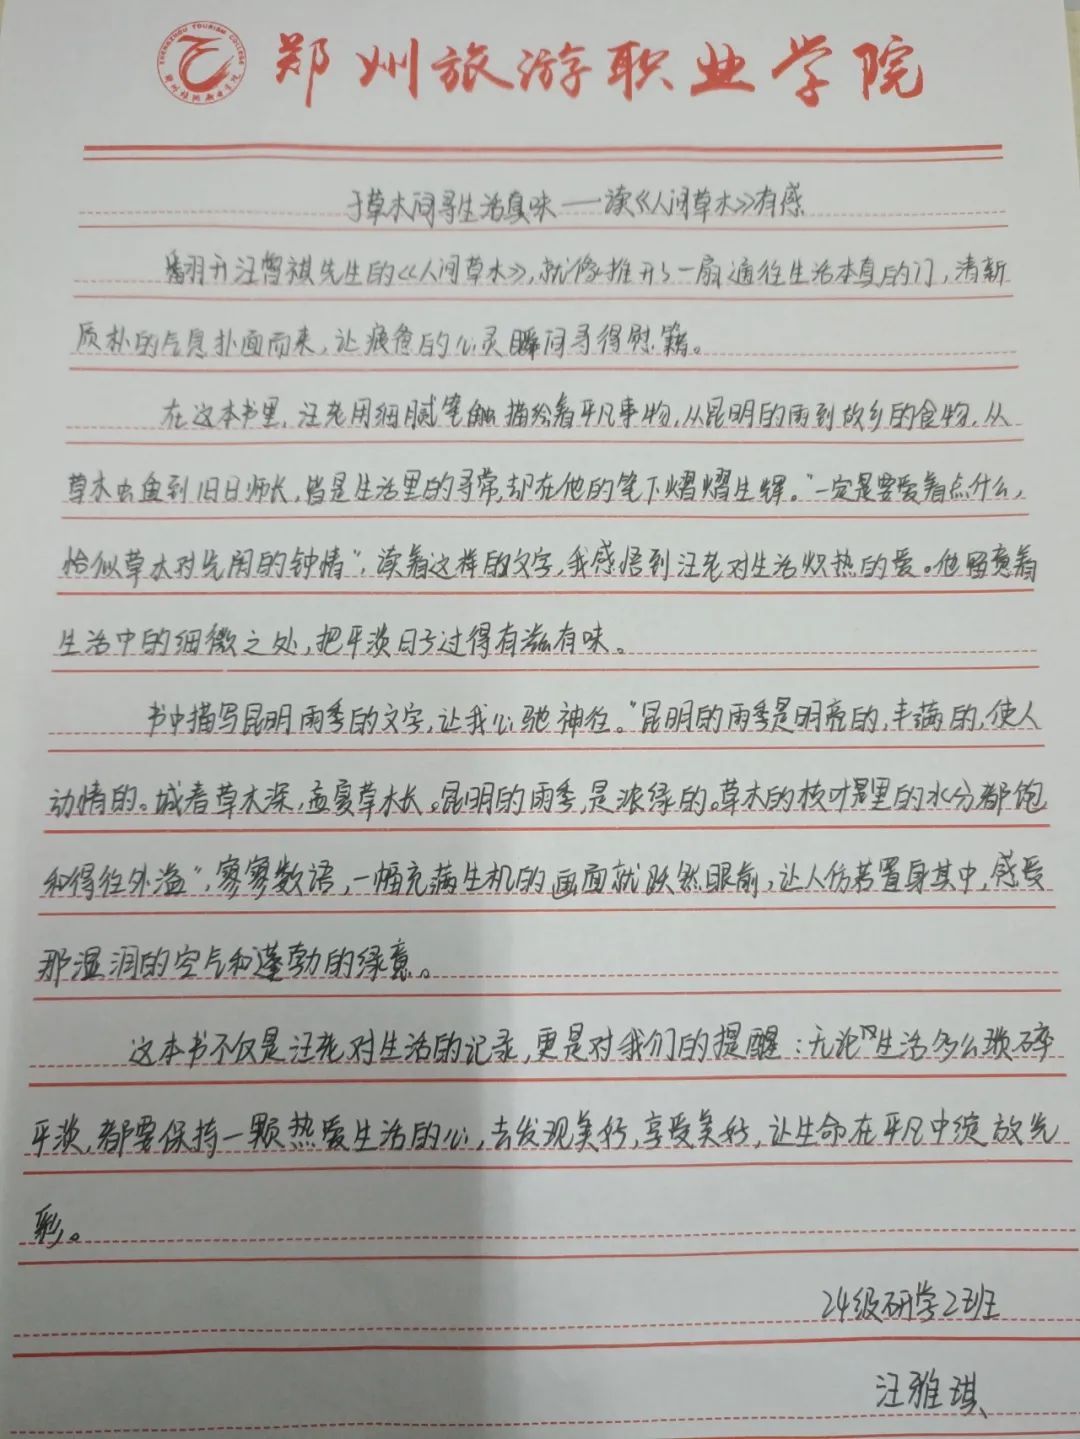 ZHENGZHOU TOURISM COLLEGE
郑州旅游职业学院
郑州旅游职业学院
于草木间寻生活真味——读《人间草木》有感
翻开汪曾祺先生的《人间草木》,就像推开了一扇通往生活本真的门,清新
质朴的气息扑面而来,让疲惫的心灵瞬间寻得慰籍。
在这本书里,汪老用细腻笔触描绘着平凡事物,从昆明的雨到故乡的食物,从
草木虫鱼到旧日师长,皆是生活里的寻常,却在他的笔下熠熠生辉。“一定要爱着点什么,
恰似草木对光阴的钟情”,读着这样的文字,我感悟到汪老对生活炽热的爱。他留意着
生活中的细微之处,把平淡日子过得有滋有味。
书中描写昆明雨季的文字,让我心驰神往。“昆明的雨季是明亮的,丰满的,使人
动情的。城春草木深,孟夏草木长。昆明的雨季,是浓绿的。草木的枝叶里的水分都饱
和得往外溢”,寥寥数语,一幅充满生机的画面就跃然眼前,让人仿若置身其中,感受
那湿润的空气和蓬勃的绿意。
这本书不仅是汪老对生活的记录,更是对我们的提醒:无论生活多么琐碎
平淡,都要保持一颗热爱生活的心,去发现美好,享受美好,让生命在平凡中绽放光
彩。
24级研学2班
汪雅琪